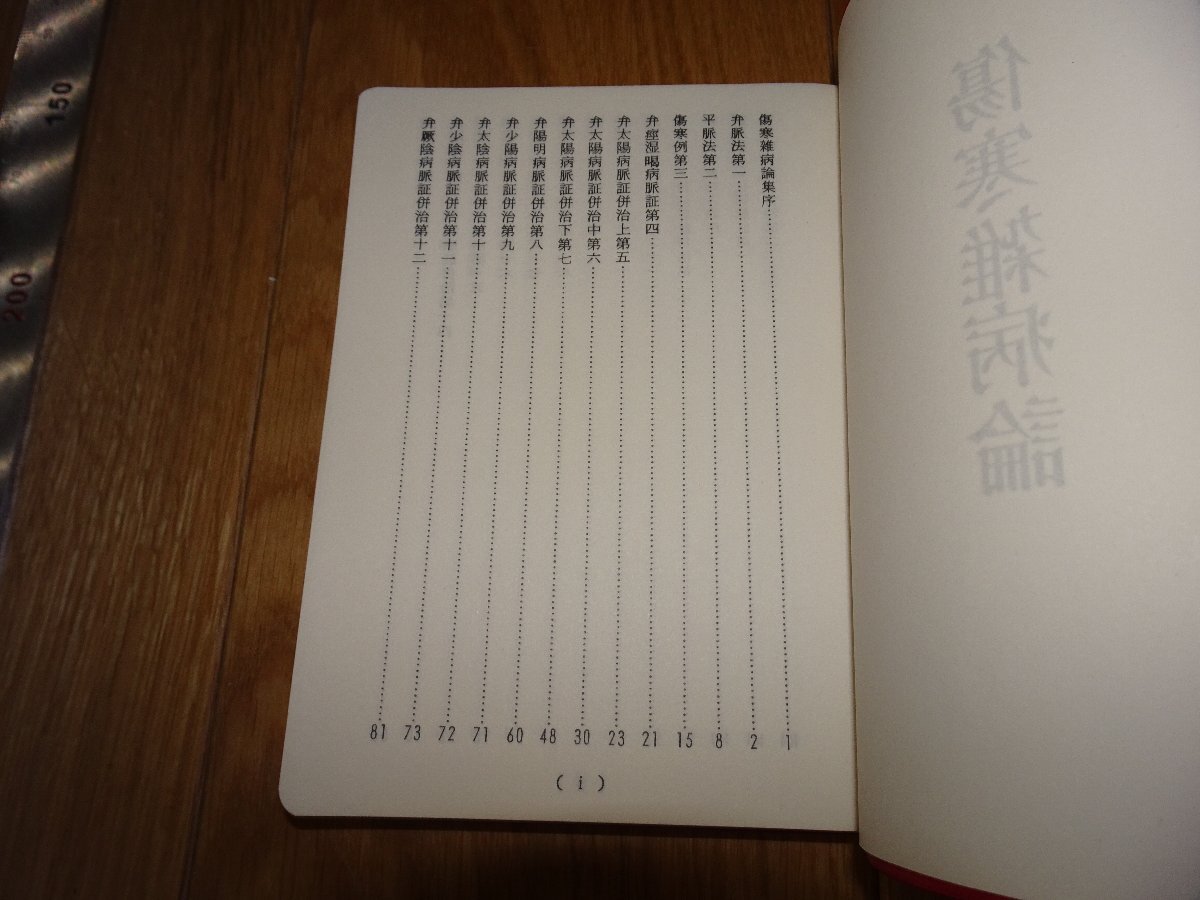 傷寒雑病論
傷寒雑病論集序……1
弁脈法第一……2
平脈法第二……8
傷寒例第三……15
弁痙湿暍病脈証第四……21
弁太陽病脈証併治上第五……23
弁太陽病脈証併治中第六……30
弁太陽病脈証併治下第七……48
弁陽明病脈証併治第八……60
弁少陽病脈証併治第九……71
弁太陰病脈証併治第十……72
弁少陰病脈証併治第十一……73
弁厥陰病脈証併治第十二……81
( i )
150
200